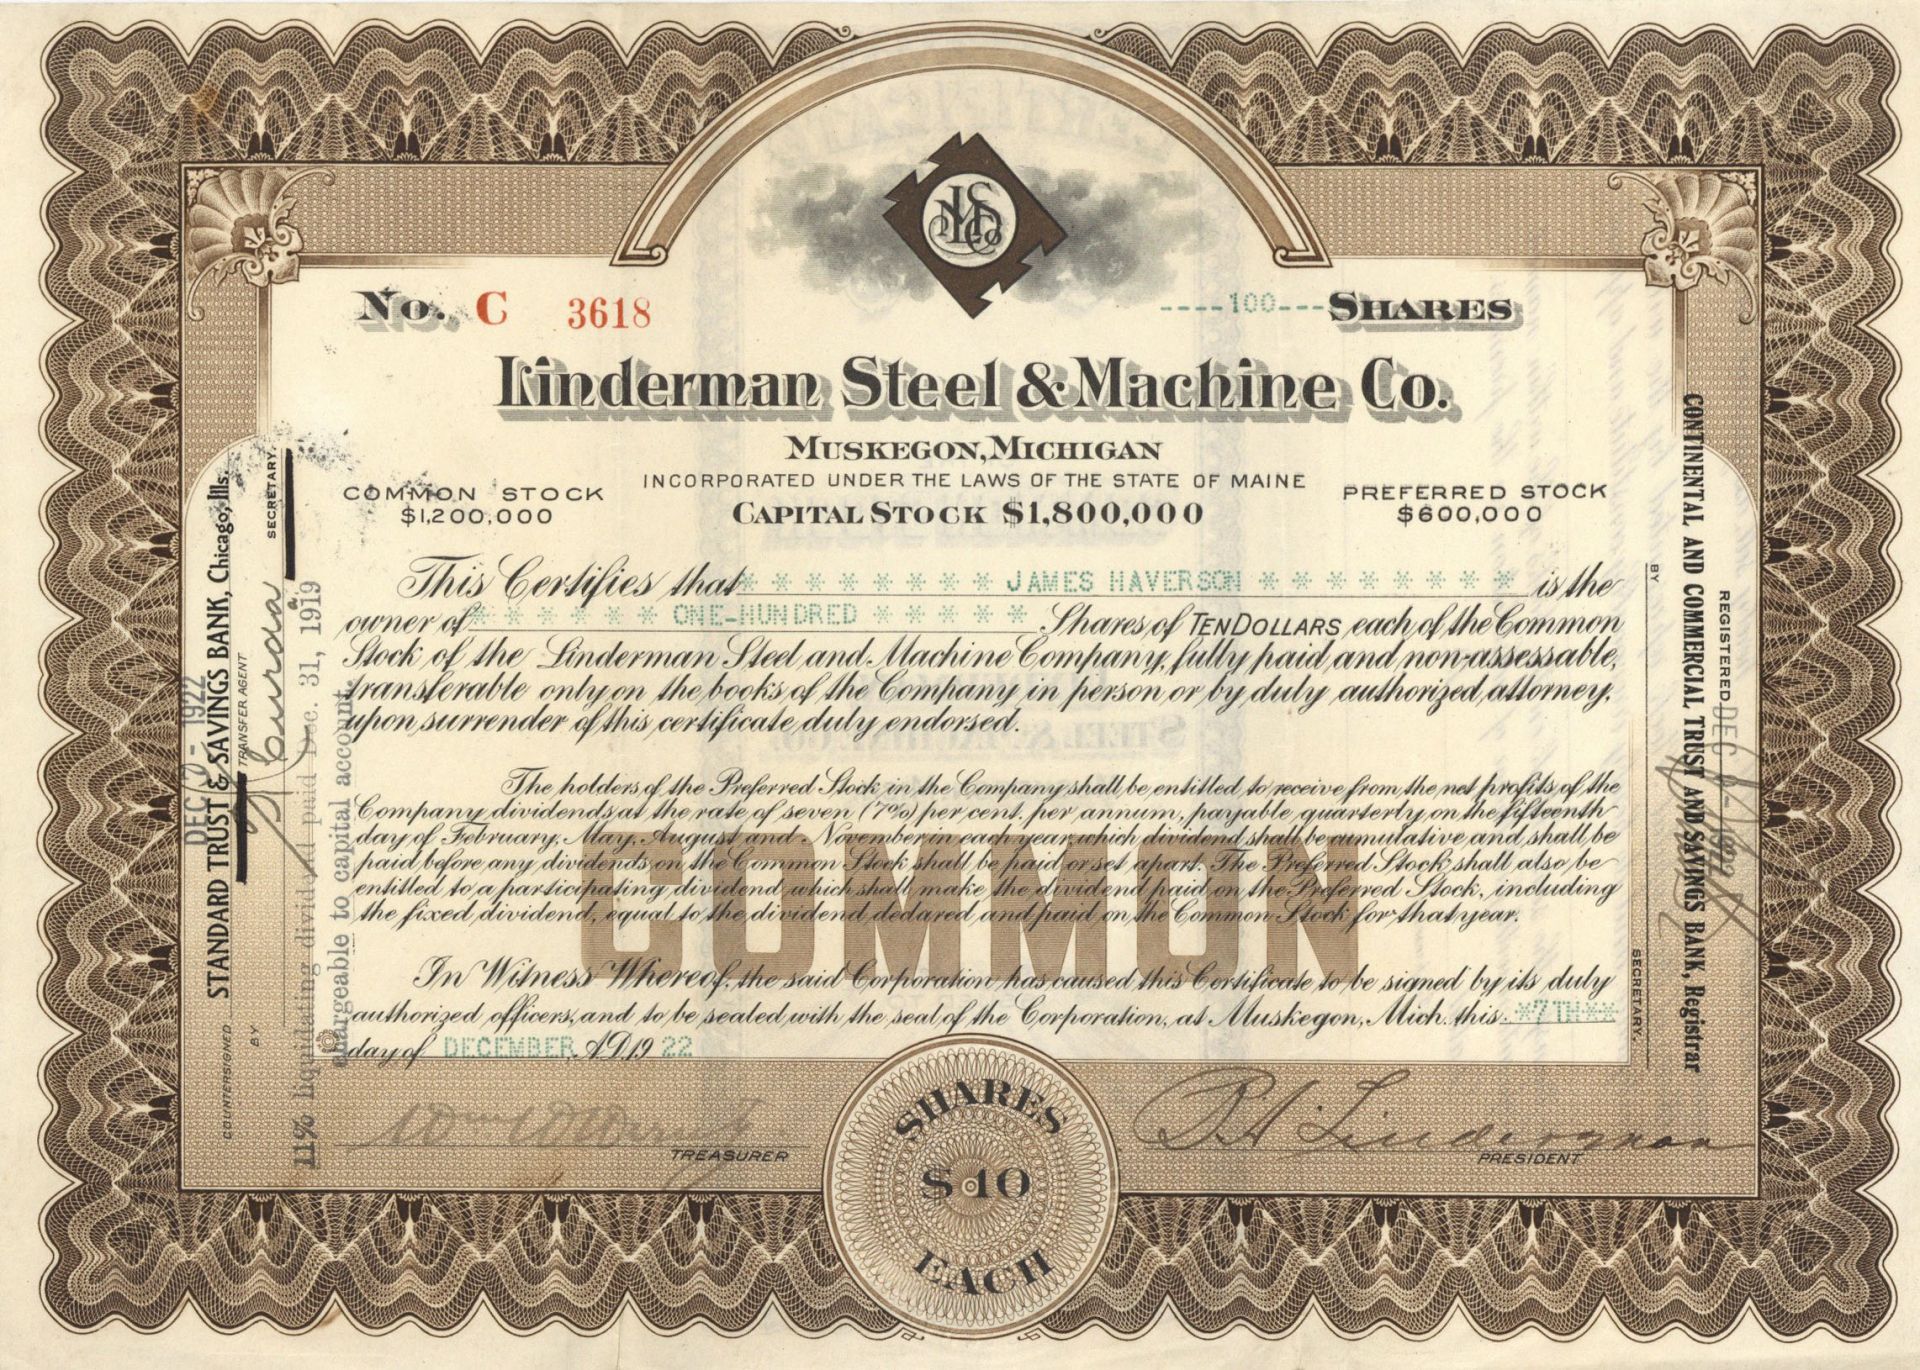 No. C 3618
----100--- SHARES
Linderman Steel & Machine Co.
MUSKEGON, MICHIGAN
INCORPORATED UNDER THE LAWS OF THE STATE OF MAINE
COMMON STOCK
$1,200,000
CAPITAL STOCK $1,800,000
PREFERRED STOCK
$600,000
This Certifies that * * * * * * * * JAMES HAVERSON * * * * * * * * is the
owner of * * * * * * ONE-HUNDRED * * * * * Shares of TEN DOLLARS each of the Common
Stock of the Linderman Steel and Machine Company, fully paid and non-assessable,
transferable only on the books of the Company in person or by duly authorized attorney,
upon surrender of this certificate duly endorsed.
The holders of the Preferred Stock in the Company shall be entitled to receive from the net profits of the
Company dividends at the rate of seven (7%) per cent. per annum, payable quarterly on the fifteenth
day of February, May, August and November in each year which dividend shall be cumulative and shall be
paid before any dividends on the Common Stock shall be paid or set apart. The Preferred Stock shall also be
entitled to a participating dividend, which shall make the dividend paid on the Preferred Stock, including
the fixed dividend, equal to the dividend declared and paid on the Common Stock for that year.
COMMON
In Witness Whereof, the said Corporation has caused this Certificate to be signed by its duly
authorized officers, and to be sealed with the seal of the Corporation, at Muskegon, Mich. this *7TH**
day of DECEMBER A.D. 19 22
TREASURER
P. A. Linderman
PRESIDENT
SHARES
$10
EACH
COUNTERSIGNED
STANDARD TRUST & SAVINGS BANK, Chicago, Ills.
DEC - 1922
BY
TRANSFER AGENT
SECRETARY.
11% liquidating dividend paid Dec. 31, 1919
chargeable to capital account.
CONTINENTAL AND COMMERCIAL TRUST AND SAVINGS BANK, Registrar
REGISTERED
BY
SECRETARY.